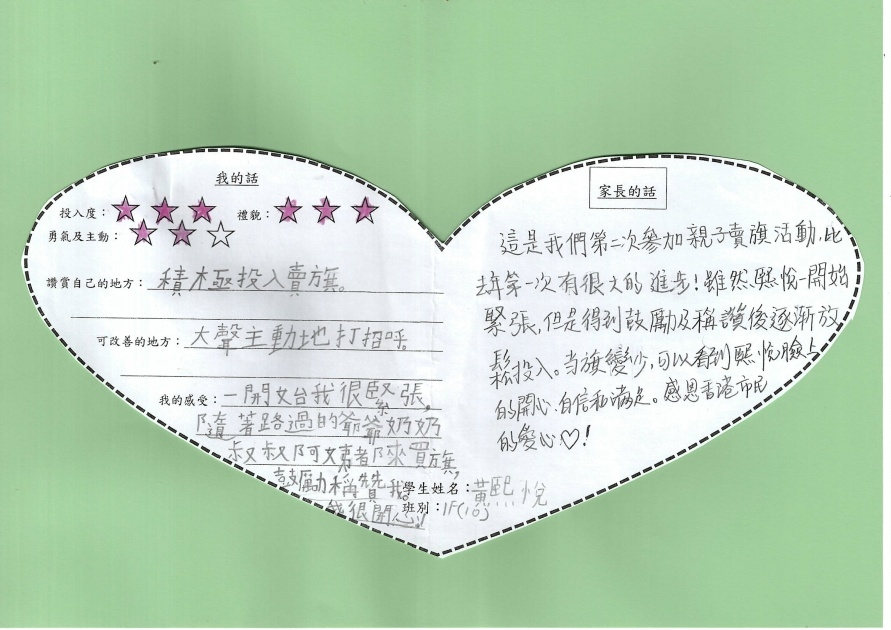 我的話
投入度：★★★ 禮貌：★★★
勇氣及主動：★★☆
讚賞自己的地方：積極投入賣旗。
可改善的地方：大聲主動地打招呼。
我的感受：一開始我很緊張，
隨著路過的爺爺奶奶
叔叔阿姨都來買旗，
鼓勵稱贊我。
我很開心！
學生姓名：黃熙悅
班別：1F(10)
家長的話
這是我們第二次參加親子賣旗活動，比
去年第一次有很大的進步！雖然熙悅一開始
緊張，但是得到鼓勵及稱讚後逐漸放
鬆投入。当旗變少，可以看到熙悅臉上
的開心、自信和滿足。感恩香港市民
的愛心♡！